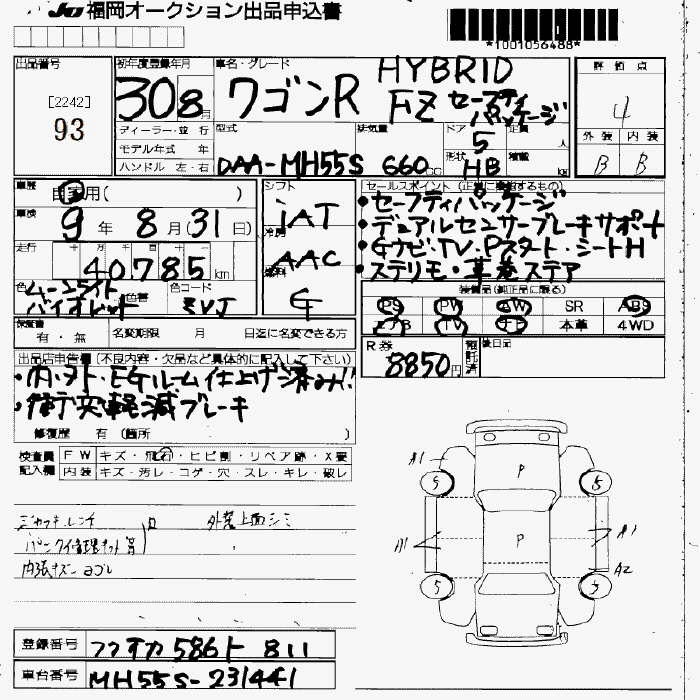 JU 福岡オークション出品申込書
*1001056488*
出品番号
[2242]
93
初年度登録年月
30 8月
車名・グレード
ワゴンR HYBRID
FZ セーフティパッケージ
評価点
4
外装 内装
B B
ディーラー・並行
モデル年式 年
ハンドル 左・右
型式
DAA-MH55S
排気量
660cc
ドア
5
形状
HB
定員
人
積載
kg
車歴
自家用( )
車検
9年 8月(31日)
走行
十 万 千 百 十
40,785km
色
ムーンライト
バイオレット
色替
色コード
ZVJ
シフト
iAT
冷房
AAC
燃料
G
セールスポイント(正常に機能するもの)
・セーフティパッケージ
・デュアルセンサーブレーキサポート
・Gナビ・TV・Pスタート・シートH
・ステリモ・革巻ステア
装備品(純正品に限る)
PS PW AW SR ABS
エアB TV ナビ 本革 4WD
保証書
有・無
名変期限 月 日迄に名変できる方
R券
8850円
預託済
後日品
出品店申告欄(不良内容・欠品など具体的に記入して下さい)
・内・外・EGルーム仕上げ済み!!
・衝突軽減ブレーキ
修復歴 有(箇所 )
検査員記入欄
FW キズ・飛石・ヒビ割・リペア跡・X要
内装 キズ・汚レ・コゲ・穴・スレ・キレ・破レ
ジャッキ、レンチ 外装上面シミ
パンク修理キット有
内張キズ ヨゴレ
A1
P
5 5
A1 P A1
A2
5 5
登録番号 フクオカ 586ト 811
車台番号 MH55S-231441